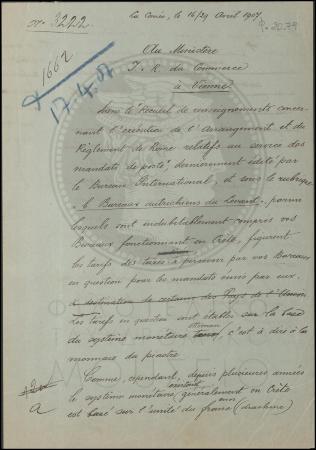 No. 3222
La Canée, le 16/29 Avril 1907
1662
17.4.07
Au Ministère
I. R. du Commerce
à Vienne
Dans le "Recueil de renseignements concer-
nant l'exécution de l'Arrangement et du
Règlement de Rome relatifs au service des
mandats de poste" dernièrement édité par
le Bureau International, et sous le rubrique
"b. Bureaux autrichiens du Levant", parmi
lesquels sont indubitablement compris vos
Bureaux fonctionnant en Crète, figurent
les tarifs des taxes à percevoir par vos Bureaux
en question pour les mandats émis par eux.
à destination de certains des Pays de l'Union
Les tarifs en question sont établis sur la base
du système monétaire ottoman, c'est à dire à la
monnaie du piastre
Comme, cependant, depuis plusieures années
le système monétaire généralement en Crète
est basé sur l'unité du franc (drachme)
a